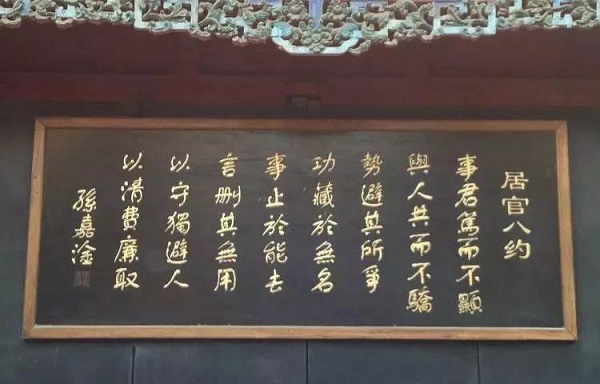 居官八约
事君篤而不顯
與人共而不驕
勢避其所爭
功藏於無名
事止於能去
言刪其無用
以守獨避人
以清費廉取
孫嘉淦